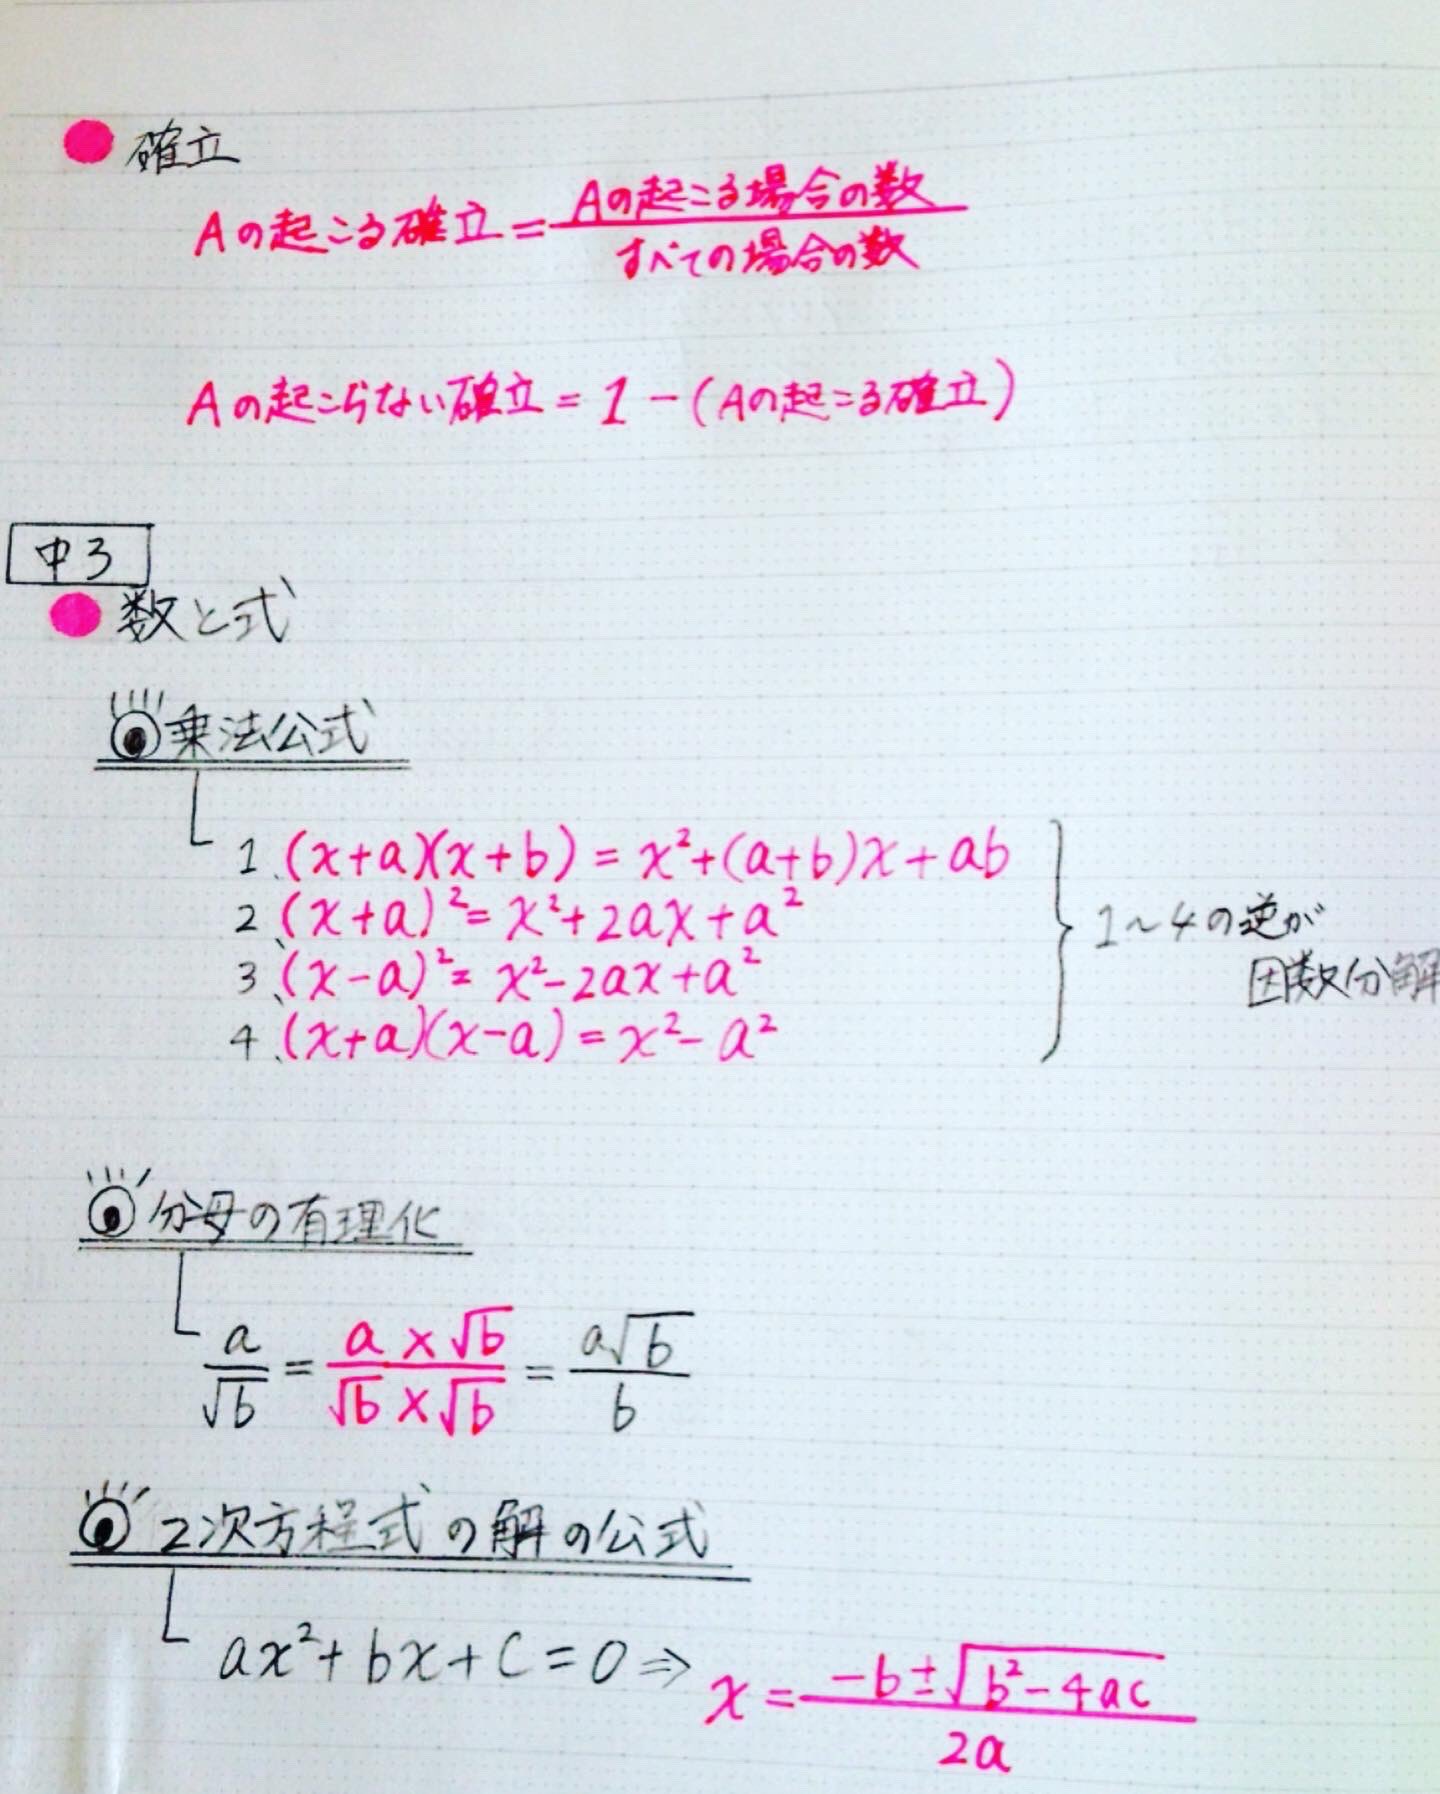 確立
Aの起こる確立=Aの起こる場合の数/すべての場合の数
Aの起こらない確立=1-(Aの起こる確立)
中3
数と式
乗法公式
1、(x+a)(x+b)=x²+(a+b)x+ab
2、(x+a)²=x²+2ax+a²
3、(x-a)²=x²-2ax+a²
4、(x+a)(x-a)=x²-a²
1~4の逆が
因数分解
分母の有理化
a/√b=a×√b/√b×√b=a√b/b
2次方程式の解の公式
ax²+bx+c=0⇒x=-b±√b²-4ac/2a